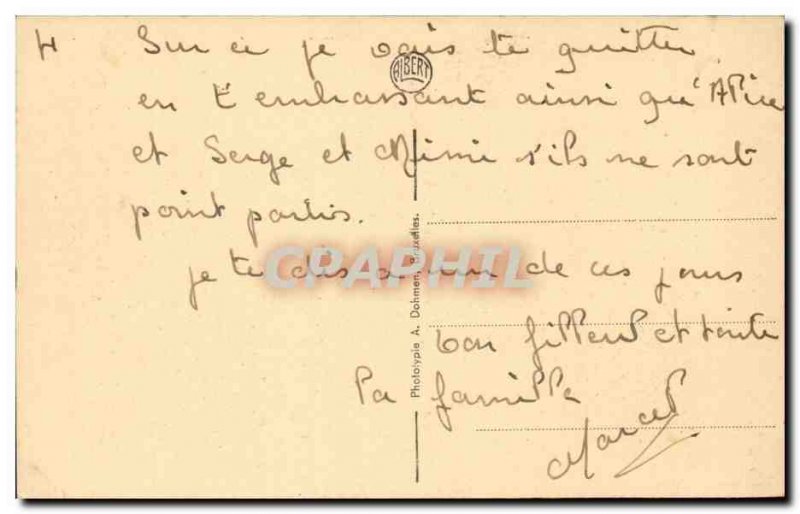 4 Sur ce je vais te quitter
ALBERT
en t'embrassant ainsi qu'Alice
et Serge et Mimi s'ils ne sont
point partis.
je te dis a un de ces jours
ton filleul et toute
la famille
Marcel
Phototypie A. Dohmen, Bruxelles.
CPAPHIL